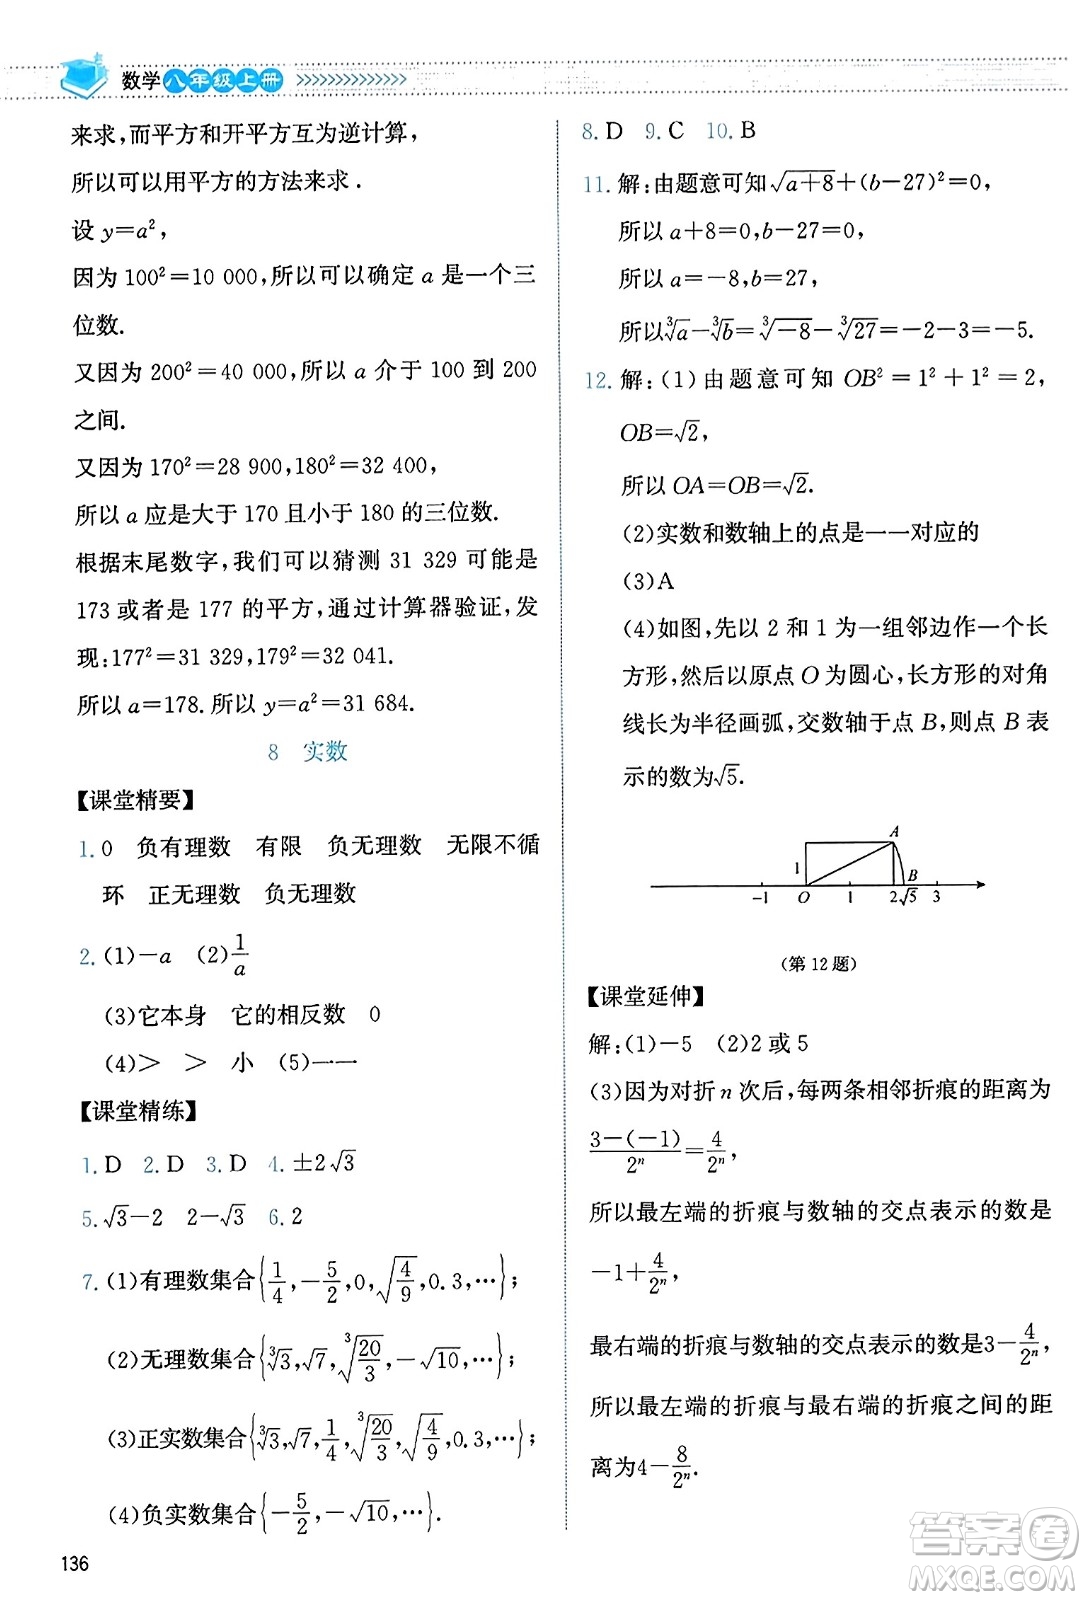 数学八年级上册
来求,而平方和开平方互为逆计算,
所以可以用平方的方法来求.
设 y=a²,
因为 100²=10 000,所以可以确定 a 是一个三
位数.
又因为 200²=40 000,所以 a 介于 100 到 200
之间.
又因为 170²=28 900,180²=32 400,
所以 a 应是大于 170 且小于 180 的三位数.
根据末尾数字,我们可以猜测 31 329 可能是
173 或者是 177 的平方,通过计算器验证,发
现:177²=31 329,179²=32 041.
所以 a=178.所以 y=a²=31 684.
8 实数
【课堂精要】
1.0 负有理数 有限 负无理数 无限不循
环 正无理数 负无理数
2.(1)-a (2)1/a
(3)它本身 它的相反数 0
(4)> > 小 (5)一一
【课堂精练】
1.D 2.D 3.D 4.±2√3
5.√3-2 2-√3 6.2
7.(1)有理数集合{1/4,-5/2,0,√(4/9),0.3,…};
(2)无理数集合{∛3,√7,∛(20/3),-√10,…};
(3)正实数集合{∛3,√7,1/4,∛(20/3),√(4/9),0.3,…};
(4)负实数集合{-5/2,-√10,…}.
136
8.D 9.C 10.B
11.解:由题意可知√(a+8)+(b-27)²=0,
所以 a+8=0,b-27=0,
所以 a=-8,b=27,
所以∛a-∛b=∛-8-∛27=-2-3=-5.
12.解:(1)由题意可知 OB²=1²+1²=2,
OB=√2,
所以 OA=OB=√2.
(2)实数和数轴上的点是一一对应的
(3)A
(4)如图,先以 2 和 1 为一组邻边作一个长
方形,然后以原点 O 为圆心,长方形的对角
线长为半径画弧,交数轴于点 B,则点 B 表
示的数为√5.
A
1
B
-1 O 1 2 √5 3
(第 12 题)
【课堂延伸】
解:(1)-5 (2)2 或 5
(3)因为对折 n 次后,每两条相邻折痕的距离为
(3-(-1))/2ⁿ=4/2ⁿ,
所以最左端的折痕与数轴的交点表示的数是
-1+4/2ⁿ,
最右端的折痕与数轴的交点表示的数是3-4/2ⁿ,
所以最左端的折痕与最右端的折痕之间的距
离为4-8/2ⁿ.
答案卷
MXQE.COM